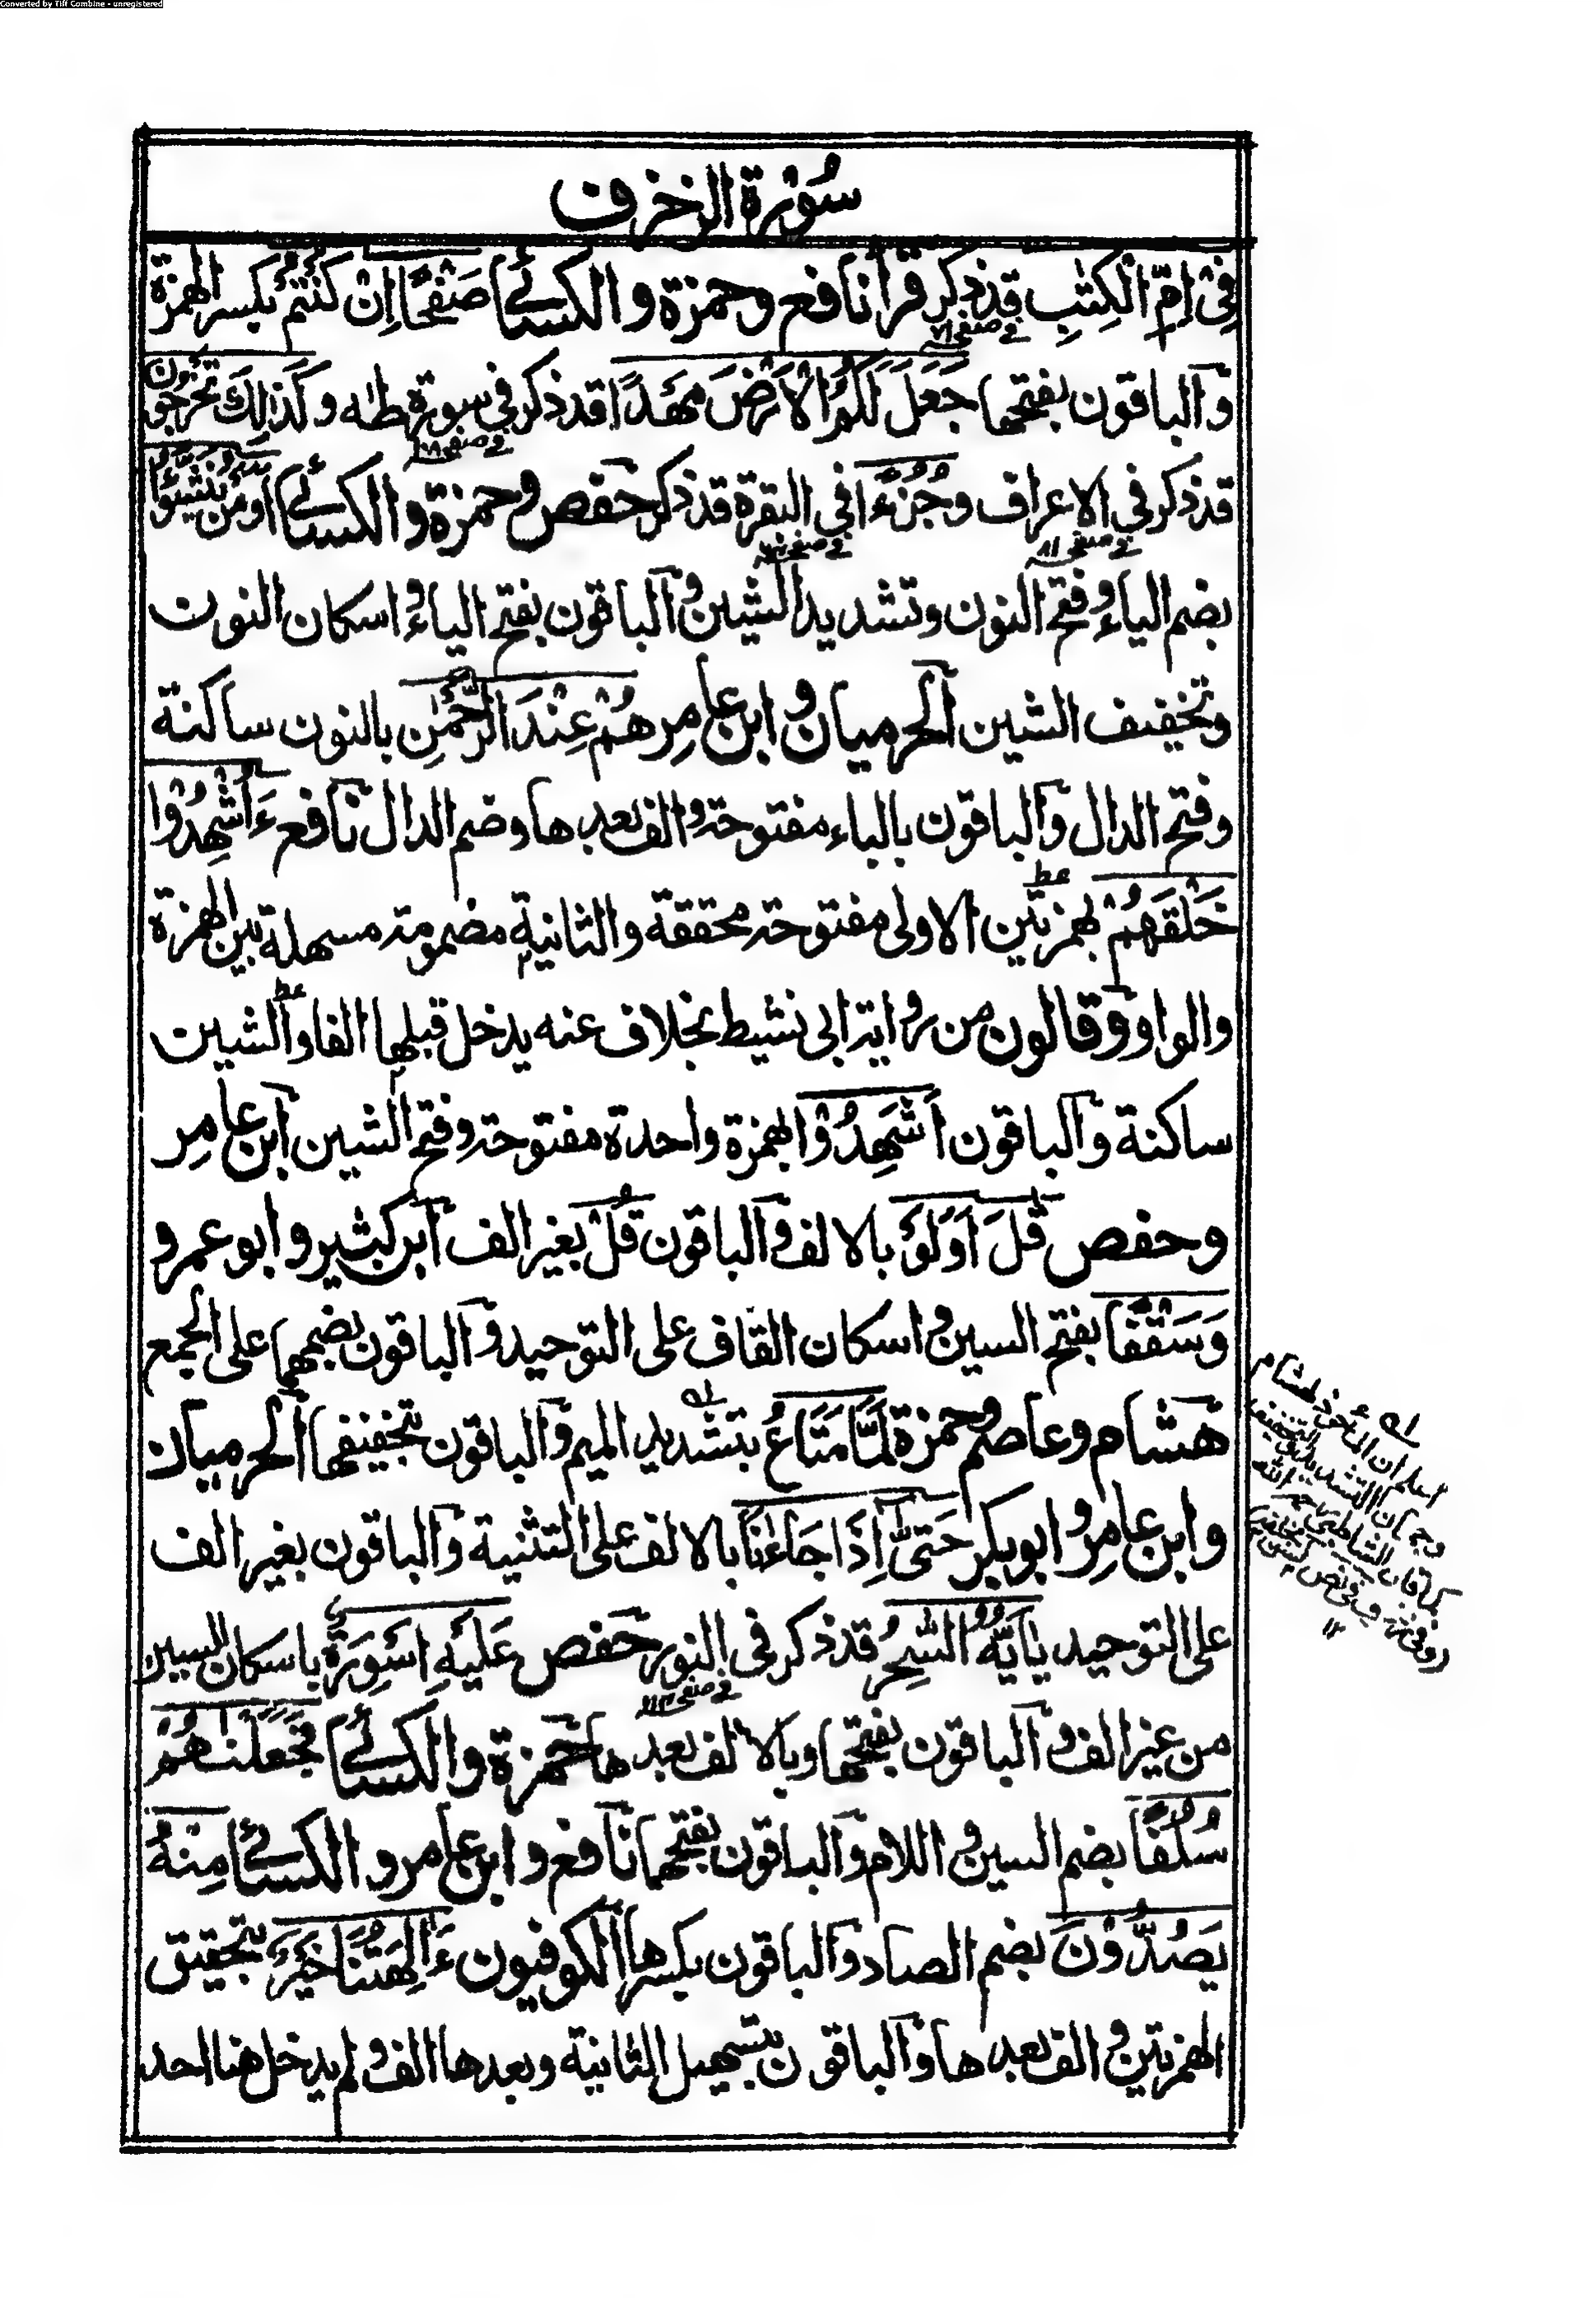 Converted by Tiff Combine - unregistered
سُوْرَة الزخرف
فِيْ اُمِّ الْكِتٰبِ قد ذكر قرأ نافع وحمزة والكسائے صَفْحًا اِنْ كُنْتُمْ بكسر الهمزة
في صفحه
والباقون بفتحها جَعَلَ لَكُمُ الْاَرْضَ مَهْدًا قد ذكر في سورة طٰه وكَذٰلِكَ تُخْرَجُوْنَ
في صفحه
قد ذكر في الاعراف وجُزْءًا في البقرة قد ذكر حفص وحمزة والكسائے اَوَمَنْ يُنَشَّؤُا
في صفحه ٨١ في صفحه
بضم الياء وفتح النون وتشديد الشين والباقون بفتح الياء واسكان النون
وتخفيف الشين الحرميان وابن عامر هُمْ عِنْدَ الرَّحْمٰنِ بالنون ساكنة
وفتح الدال والباقون بالباء مفتوحة والف بعدها وضم الدال نافع ءَاُشْهِدُوْا
خَلْقَهُمْ بهمزتين الاولى مفتوحة محققة والثانية مضمومة مسهلة بين الهمزة
والواو وقالون من رواية ابي نشيط بخلاف عنه يدخل قبلها الفا والشين
ساكنة والباقون اَشَهِدُوْا بهمزة واحدة مفتوحة وفتح الشين ابن عامر
وحفص قٰلَ اَوَلَوْ بالالف والباقون قُلْ بغير الف ابن كثير وابو عمرو
وَسَقْفًا بفتح السين واسكان القاف على التوحيد والباقون بضمها على الجمع
هشام وعاصم وحمزة لَمَّا مَتَاعُ بتشديد الميم والباقون بتخفيفها الحرميان
وابن عامر وابوبكر حَتّٰى اِذَا جَاءٰنَا بالالف على التثنية والباقون بغير الف
على التوحيد يٰاَيُّهَ السّٰحِرُ قد ذكر في النور حفص عَلَيْهِ اَسْوِرَةٌ باسكان السين
في صفحه
من غير الف والباقون بفتحها وبالالف بعدها حمزة والكسائے فَجَعَلْنٰهُمْ
سُلُفًا بضم السين واللام والباقون بفتحهما نافع وابن عامر والكسائے مِنْهُ
يَصُدُّوْنَ بضم الصاد والباقون بكسرها الكوفيون ءَاٰلِهَتُنَا خَيْرٌ بتحقيق
الهمزتين والف بعدها والباقون بتسهيل الثانية وبعدها الف ولم يدخل هنا احد
اعلم ان
وجهان التشديد والتخفيف